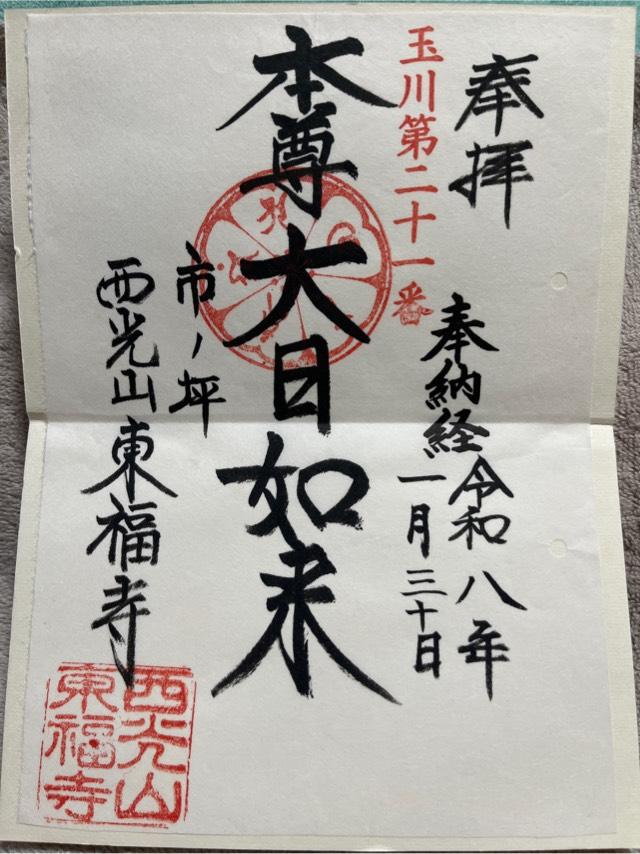 奉拝
奉納経
令和八年
一月三十日
玉川第二十一番
本尊大日如来
市ノ坪
西光山東福寺
西光山
東福寺